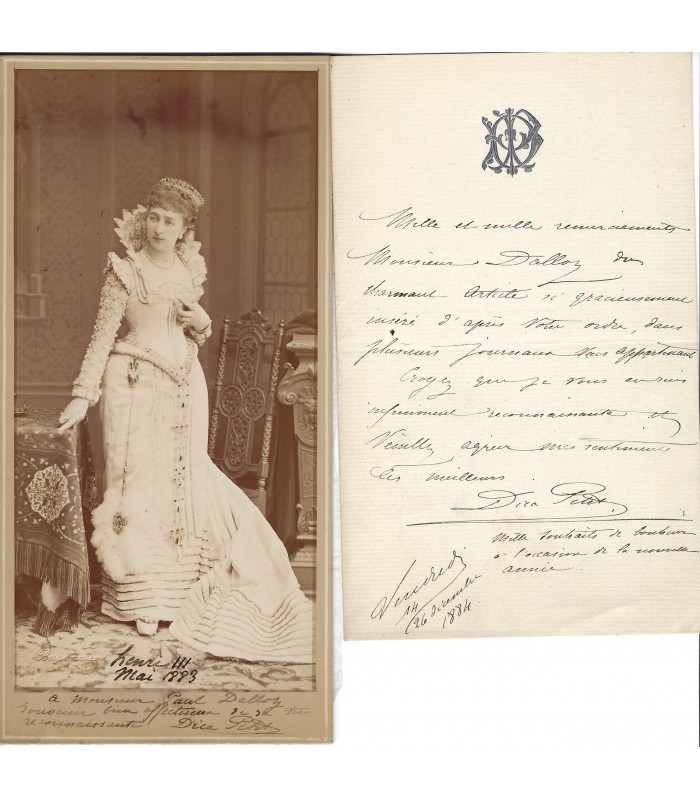 Henri III
Mai 1883
A Monsieur Paul Dalloz
Souvenir bien affectueux de sa très
reconnaissante Dica Petit
Mille et mille remerciements
Monsieur Dalloz du
charmant article si gracieusement
inséré d'après votre ordre, dans
plusieurs journaux vous appartenant
Croyez que je vous en suis
infiniment reconnaissante et
Veuillez agréer mes sentiments
les meilleurs.
Dica Petit
Mille souhaits de bonheur
à l'occasion de la nouvelle
année.
Vendredi
26 décembre
1884